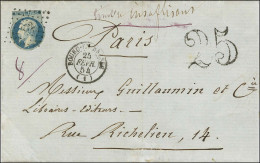 Timbre insuffisant
Paris
25
25
FEVR.
54
(1)
8
Messieurs Guillaumin et Cie
Libraires-éditeurs
Rue Richelieu, 14.